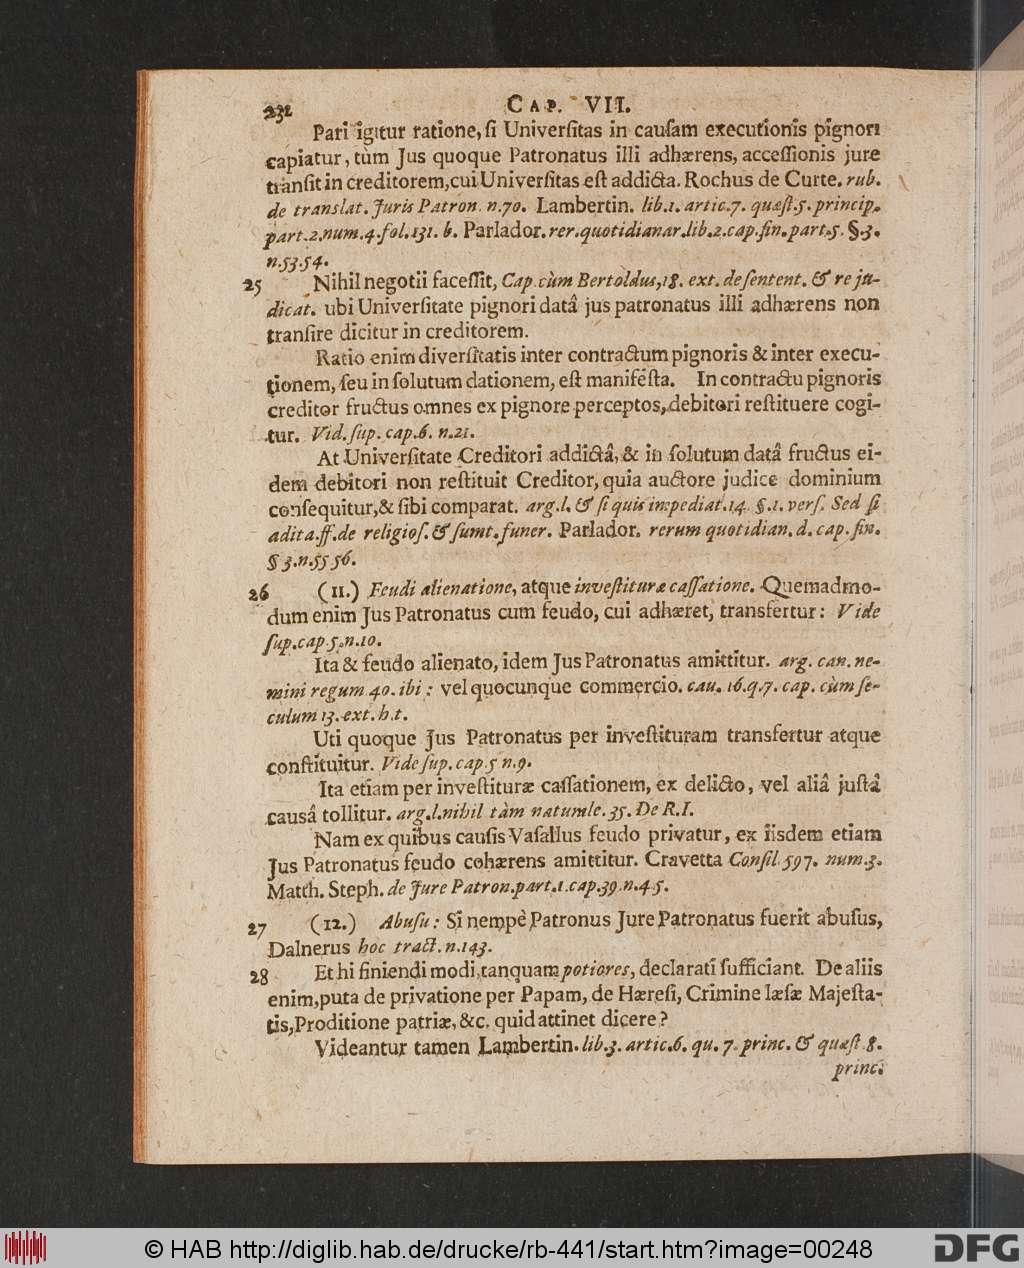 232
CAP. VII.
Pari igitur ratione, ſi Univerſitas in cauſam executionis pignori
capiatur, tùm Jus quoque Patronatus illi adhærens, acceſſionis jure
tranſit in creditorem, cui Univerſitas eſt addicta. Rochus de Curte. rub.
de translat. Juris Patron. n.70. Lambertin. lib.1. artic.7. quæſt.5. princip.
part.2. num.4. fol.131. b. Parlador. rer. quotidianar. lib.2. cap. fin. part.5. §.3.
n.53.54.
25 Nihil negotii faceſſit, Cap. cùm Bertoldus, 18. ext. de ſentent. & re ju-
dicat. ubi Univerſitate pignori datâ jus patronatus illi adhærens non
tranſire dicitur in creditorem.
Ratio enim diverſitatis inter contractum pignoris & inter execu-
tionem, ſeu in ſolutum dationem, eſt manifeſta. In contractu pignoris
creditor fructus omnes ex pignore perceptos, debitori reſtituere cogi-
tur. Vid. ſup. cap.6. n.21.
At Univerſitate Creditori addictâ, & in ſolutum datâ fructus ei-
dem debitori non reſtituit Creditor, quia auctore judice dominium
conſequitur, & ſibi comparat. arg. l. & ſi quis impediat. 14. §.1. verſ. Sed ſi
adita. ff. de religioſ. & ſumt. funer. Parlador. rerum quotidian. d. cap. fin.
§ 3. n.55 56.
26 (11.) Feudi alienatione, atque inveſtituræ caſſatione. Quemadmo-
dum enim Jus Patronatus cum feudo, cui adhæret, transfertur: Vide
ſup. cap.5. n.10.
Ita & feudo alienato, idem Jus Patronatus amittitur. arg. can. ne-
mini regum 40. ibi: vel quocunque commercio. cau. 16. q.7. cap. cùm ſe-
culum 13. ext. h.t.
Uti quoque Jus Patronatus per inveſtituram transfertur atque
conſtituitur. Vide ſup. cap.5 n.9.
Ita etiam per inveſtituræ caſſationem, ex delicto, vel aliâ juſtâ
causâ tollitur. arg. l. nihil tàm naturale. 35. De R.I.
Nam ex quibus cauſis Vaſallus feudo privatur, ex iisdem etiam
Jus Patronatus feudo cohærens amittitur. Cravetta Conſil. 597. num.3.
Matth. Steph. de Jure Patron. part.1. cap.39. n.4.5.
27 (12.) Abuſu: Si nempè Patronus Jure Patronatus fuerit abuſus,
Dalnerus hoc tract. n.143.
28 Et hi finiendi modi, tanquam potiores, declarati ſufficiant. De aliis
enim, puta de privatione per Papam, de Hæreſi, Crimine læſæ Majeſta-
tis, Proditione patriæ, &c. quid attinet dicere?
Videantur tamen Lambertin. lib.3. artic.6. qu. 7. princ. & quæſt. 8.
princ.
© HAB http://diglib.hab.de/drucke/rb-441/start.htm?image=00248
DFG